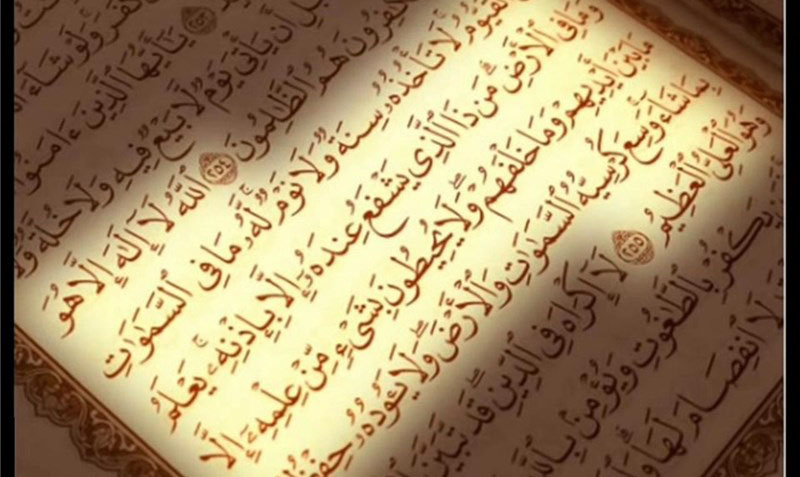 كَفَرَ وَلَوْ شَآءَ
﴿٢٥٣﴾ يَٰٓأَيُّهَا ٱلَّذِينَ ءَامَنُوٓا۟
أَن يَأْتِىَ يَوْمٌ لَّا بَيْعٌ فِيهِ وَلَا خُلَّةٌ وَلَا
كَٰفِرُونَ هُمُ ٱلظَّٰلِمُونَ ﴿٢٥٤﴾ ٱللَّهُ لَآ إِلَٰهَ إِلَّا هُوَ
قَيُّومُ لَا تَأْخُذُهُۥ سِنَةٌ وَلَا نَوْمٌ لَّهُۥ مَا فِى ٱلسَّمَٰوَٰتِ
وَمَا فِى ٱلْأَرْضِ مَن ذَا ٱلَّذِى يَشْفَعُ عِندَهُۥٓ إِلَّا بِإِذْنِهِۦ يَعْلَمُ
مَا بَيْنَ أَيْدِيهِمْ وَمَا خَلْفَهُمْ وَلَا يُحِيطُونَ بِشَىْءٍ مِّنْ عِلْمِهِۦٓ إِلَّا
بِمَا شَآءَ وَسِعَ كُرْسِيُّهُ ٱلسَّمَٰوَٰتِ وَٱلْأَرْضَ وَلَا يَـُٔودُهُۥ حِفْظُ
وَهُوَ ٱلْعَلِىُّ ٱلْعَظِيمُ ﴿٢٥٥﴾ لَآ إِكْرَاهَ فِى ٱلدِّينِ قَد تَّبَيَّنَ
كْفُرْ بِٱلطَّٰغُوتِ وَيُؤْمِنۢ بِٱللَّه
لَا ٱنفِصَامَ لَهَا